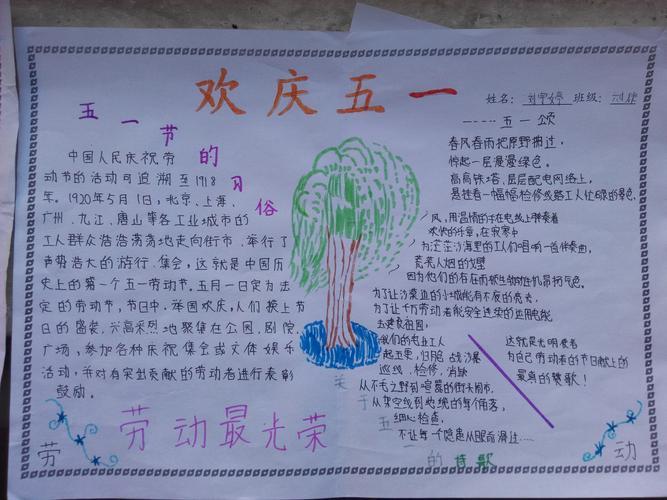 欢庆五一
姓名: 班级:
五一节的习俗
中国人民庆祝劳
动节的活动可追溯至1918
年。1920年5月1日,北京、上海、
广州、九江、唐山等各工业城市的
工人群众浩浩荡荡地走向街市、举行了
声势浩大的游行、集会,这就是中国历
史上的第一个五一劳动节。五月一日定为法
定的劳动节,节日中,举国欢庆,人们换上节
日的盛装,兴高采烈地聚集在公园、剧院、
广场,参加各种庆祝集会或文体娱乐
活动,并对有突出贡献的劳动者进行表彰
鼓励。
劳动最光荣
劳
----五一颂
春风春雨把原野拥过,
惊起一层漫漫绿色。
高高铁塔、层层配电网络上,
是挂着一幅幅检修线路工人忙碌的景色,
风,用温情的手在电线上弹奏着
欢快的伴音,在寂寞中
为茫茫沙海里的工人们唱响一首伴奏曲,
荒芜人烟的戈壁
因为他们的存在而顿生勃勃生机昂扬气色。
为了让沙漠里的小城能有不夜的亮光,
为了让千万劳动者能安全连续的运用电能,
去建设祖国,
我们的电业工人
起五更,归陌,战沙暴
巡线、检修、消缺
从不毛之野到喧嚣的街头闹市,
从架空线到地缆的每个角落,
细心检查,
不让每一个隐患从眼前滑过……
这就是光明使者
为自己劳动者的节日献上的
最真的赞歌!
关于五一的诗歌
动